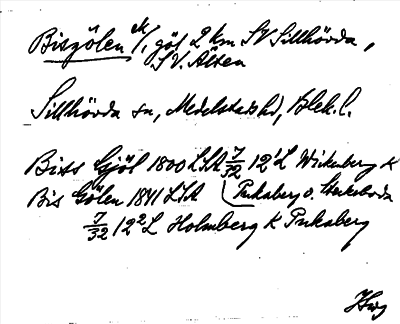 Bissgölen ek/, göl 2 km SV Sillhövda,
SV. Alten
Sillhövda sn, Medelstads hd, Blek. l.
Biss Gjöl 1800 LSA 7/32 12¹L Wikenberg K
Bis Gölen 1841 LSA Pukaberg o.
7/32 12²L Holmberg K Pukaberg